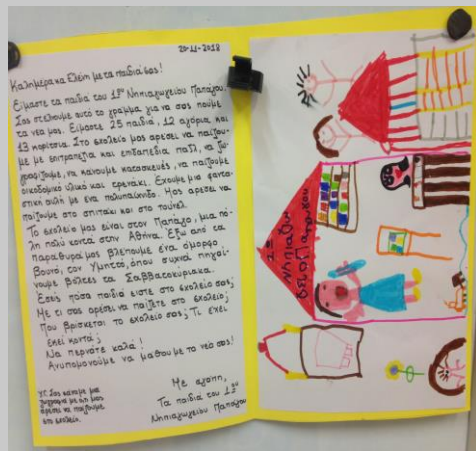 20-11-2018
Καλημέρα κα Ελένη με τα παιδιά σας!
Είμαστε τα παιδιά του 1ου Νηπιαγωγείου Παπάγου.
Σας στέλνουμε αυτό το γράμμα για να σας πούμε
τα νέα μας. Είμαστε 25 παιδιά, 12 αγόρια και
13 κορίτσια. Στο σχολείο μας αρέσει να παίζου-
με με επιτραπέζια και επιδαπέδια παζλ, να ζω-
γραφίζουμε, να κάνουμε κατασκευές, να παίζουμε
οικοδομικό υλικό και τρενάκι. Έχουμε μια φαντα-
στική αυλή με ένα πολυπαίχνιδο. Μας αρέσει να
παίζουμε στο σπιτάκι και στο τούνελ.
Το σχολείο μας είναι στον Παπάγο, μια πό-
λη πολύ κοντά στην Αθήνα. Έξω από τα
παράθυρά μας βλέπουμε ένα όμορφο
βουνό, τον Υμηττό, όπου συχνά πηγαί-
νουμε βόλτες τα Σαββατοκύριακα.
Εσείς πόσα παιδιά είστε στο σχολείο σας;
Με τι σας αρέσει να παίζετε στο σχολείο;
Που βρίσκεται το σχολείο σας; Τι έχει
εκεί κοντά;
Να περνάτε καλά!
Ανυπομονούμε να μάθουμε τα νέα σας!
Με αγάπη,
Τα παιδιά του 1ου
Νηπιαγωγείου Παπάγου
Υ.Γ. Σας κάναμε μια
ζωγραφιά με ό,τι μας
αρέσει να παίζουμε
στο σχολείο.
1ο